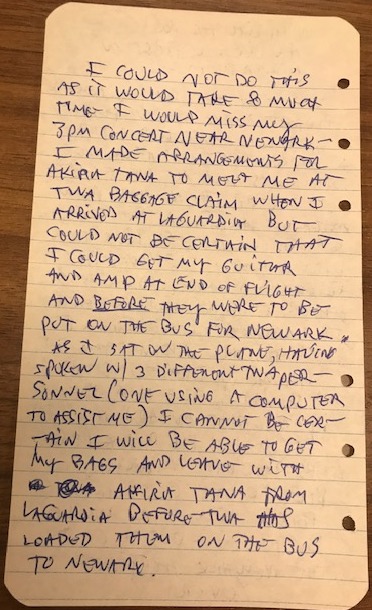 I COULD NOT DO THIS
AS IT WOULD TAKE SO MUCH
TIME I WOULD MISS MY
3PM CONCERT NEAR NEWARK –
I MADE ARRANGEMENTS FOR
AKIRA TANA TO MEET ME AT
TWA BAGGAGE CLAIM WHEN I
ARRIVED AT LAGUARDIA BUT
COULD NOT BE CERTAIN THAT
I COULD GET MY GUITAR
AND AMP AT END OF FLIGHT
AND BEFORE THEY WERE TO BE
PUT ON THE BUS FOR NEWARK.
AS I SAT ON THE PLANE, HAVING
SPOKEN W/ 3 DIFFERENT TWA PER-
SONNEL (ONE USING A COMPUTER
TO ASSIST ME) I CANNOT BE CER-
TAIN I WILL BE ABLE TO GET
MY BAGS AND LEAVE WITH
AKIRA TANA FROM
LAGUARDIA BEFORE TWA HAS
LOADED THEM ON THE BUS
TO NEWARK.